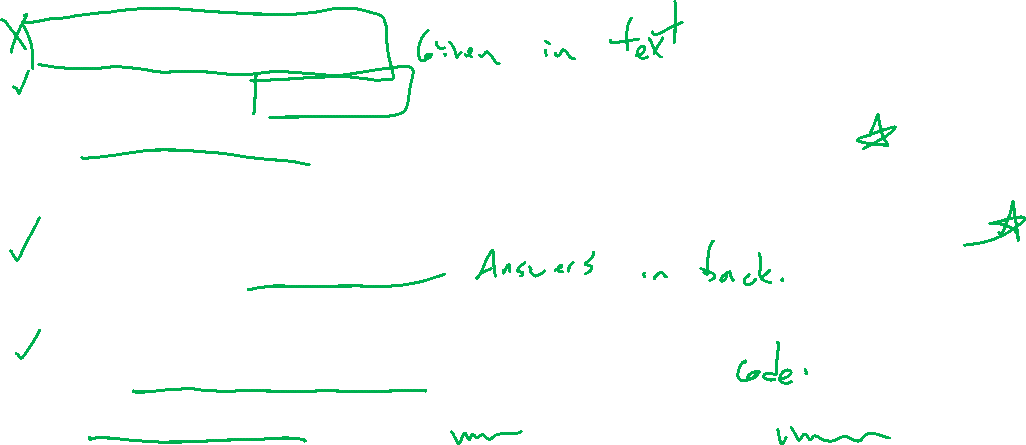 Given in text
Answers in back.
code.